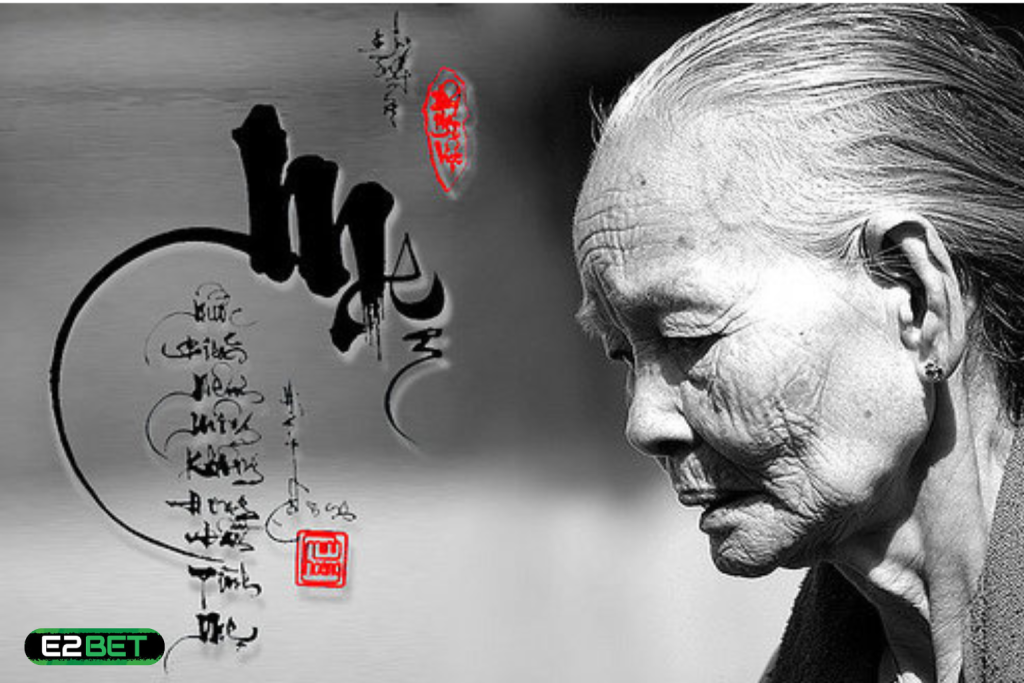 Mẹ
Nước
Biển
Mênh
Mông
Không
Đong
Đầy
Tình
Mẹ
E2BET